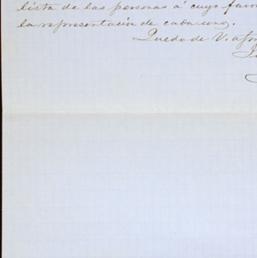 lista de las personas á cuyo favor
la representación de cada una.
Quedo de V. afmo